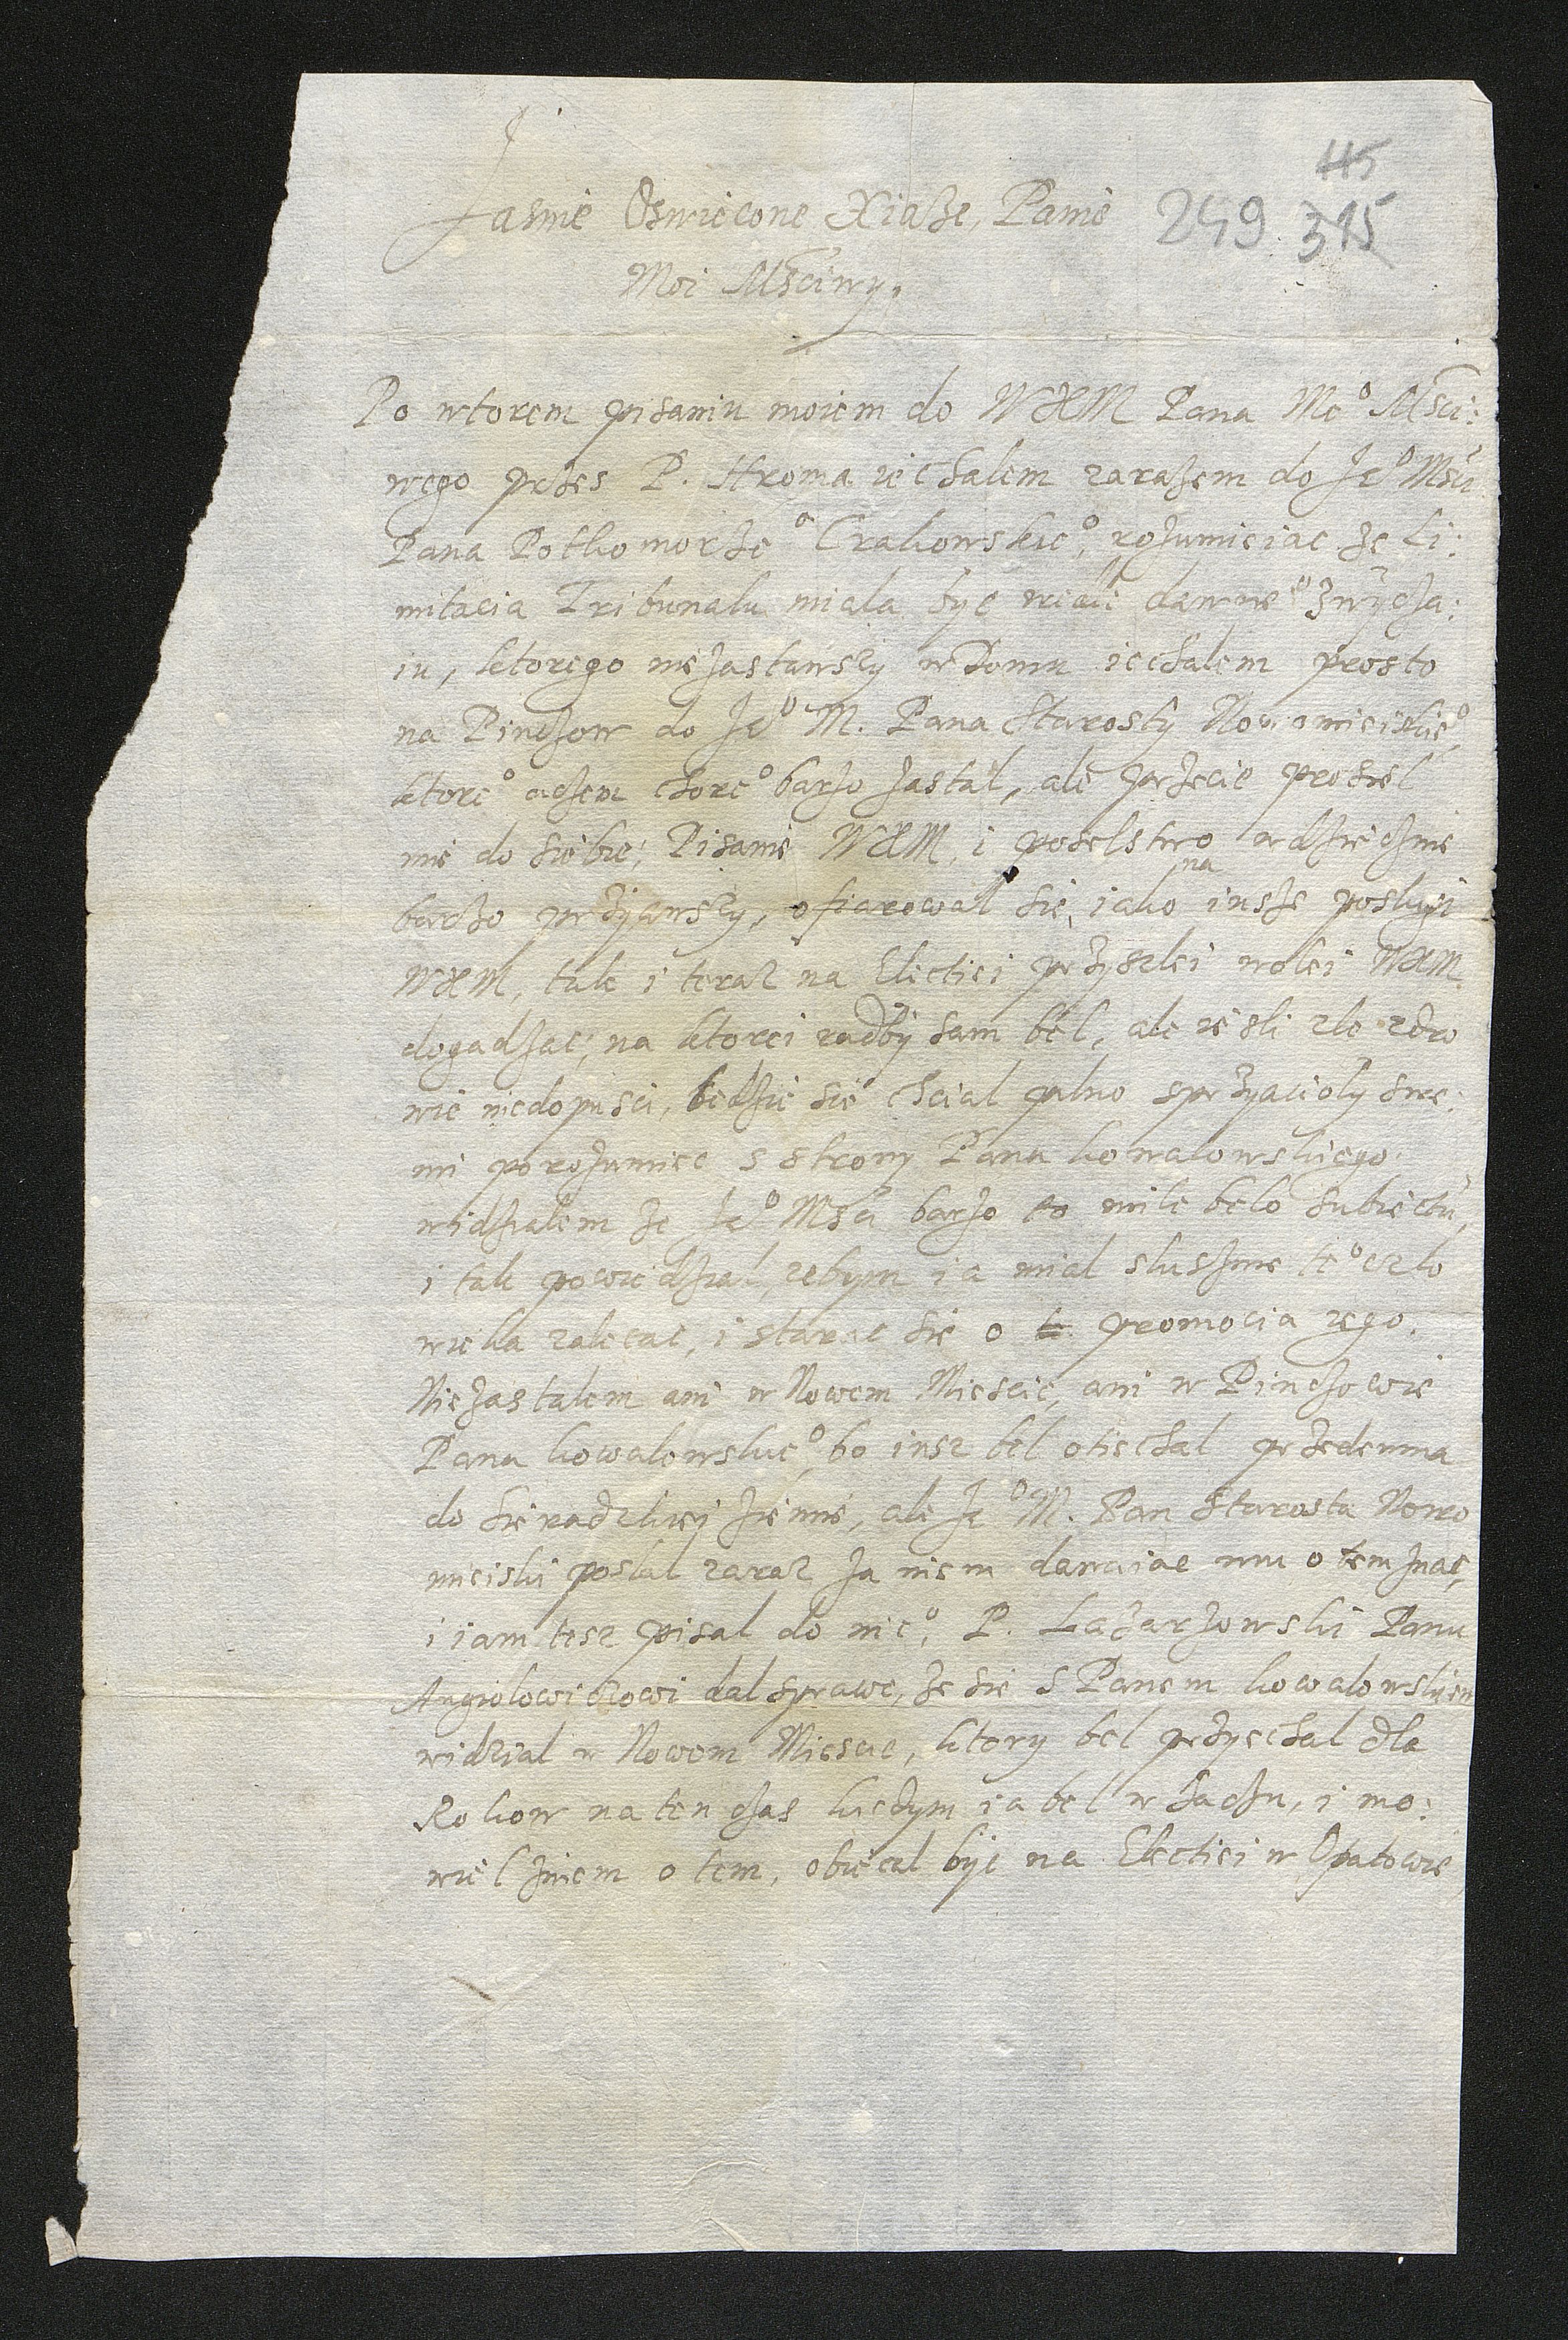 45
249 315
Jasnie Oswiecone Xiaże, Panie
Moi Msciwy.
Po wtorem pisaniu moiem do WXM Pana Me⁰ Msci:
wego przes P. Hroma iechalem zarazem do Je⁰ Msci
Pana Potkomorze⁰ Crakowskie⁰, rozumieiac ze Li:
mitacia Tribunalu miala byc dawne⁰ zwycza:
iu, ktorego niezastawszy w Domu iechalem prosto
na Pinczow do Je⁰ M. Pana Starosty Nowomieiskie⁰
ktore⁰ aczem chore⁰ barzo zastal, ale przecie prosiel
mie do siebie; Pisanie WXM, i poselstwo wdziecznie
barzo przyiawszy, ofiarowal sie, iako na insze poslugi
WXM, tak i teraz na Electiei przyszlei wolei WXM.
dogadzac; na ktorei radby sam bel, ale iesli zle zdro
wie niedopusci, bedzie sie chcial pilno sprzyacioly swe:
mi porozumiec s strony Pana kowalowskiego.
widzialem ze Je⁰ Msci barzo to mile belo subiectu,
i tak powiedzial, zebym ia mial slusznie te⁰ czlo
wieka zalecac, i starac sie o promocia iego.
Niezastalem ani w Nowem Miescie, ani w Pinczowie
Pana kowalowskie⁰, bo iusz bel otiechal przedemna
do Sieradzkiej ziemie, ale Je⁰ M. Pan Starosta Nowo
mieiski poslal zaraz za niem dawaiac mu o tem znac,
i iam tesz pisal do nie⁰. P. Lazarzowski Panu
Angiolowiczowi dal sprawe, ze sie s Panem kowalowskiem
widzial w Nowem Miescie, ktory bel przyechal dla
Rokow na ten czas kiedym ia bel w Sączu, i mo:
wiel zniem o tem, obiecal byc na Electiei w Opatowie